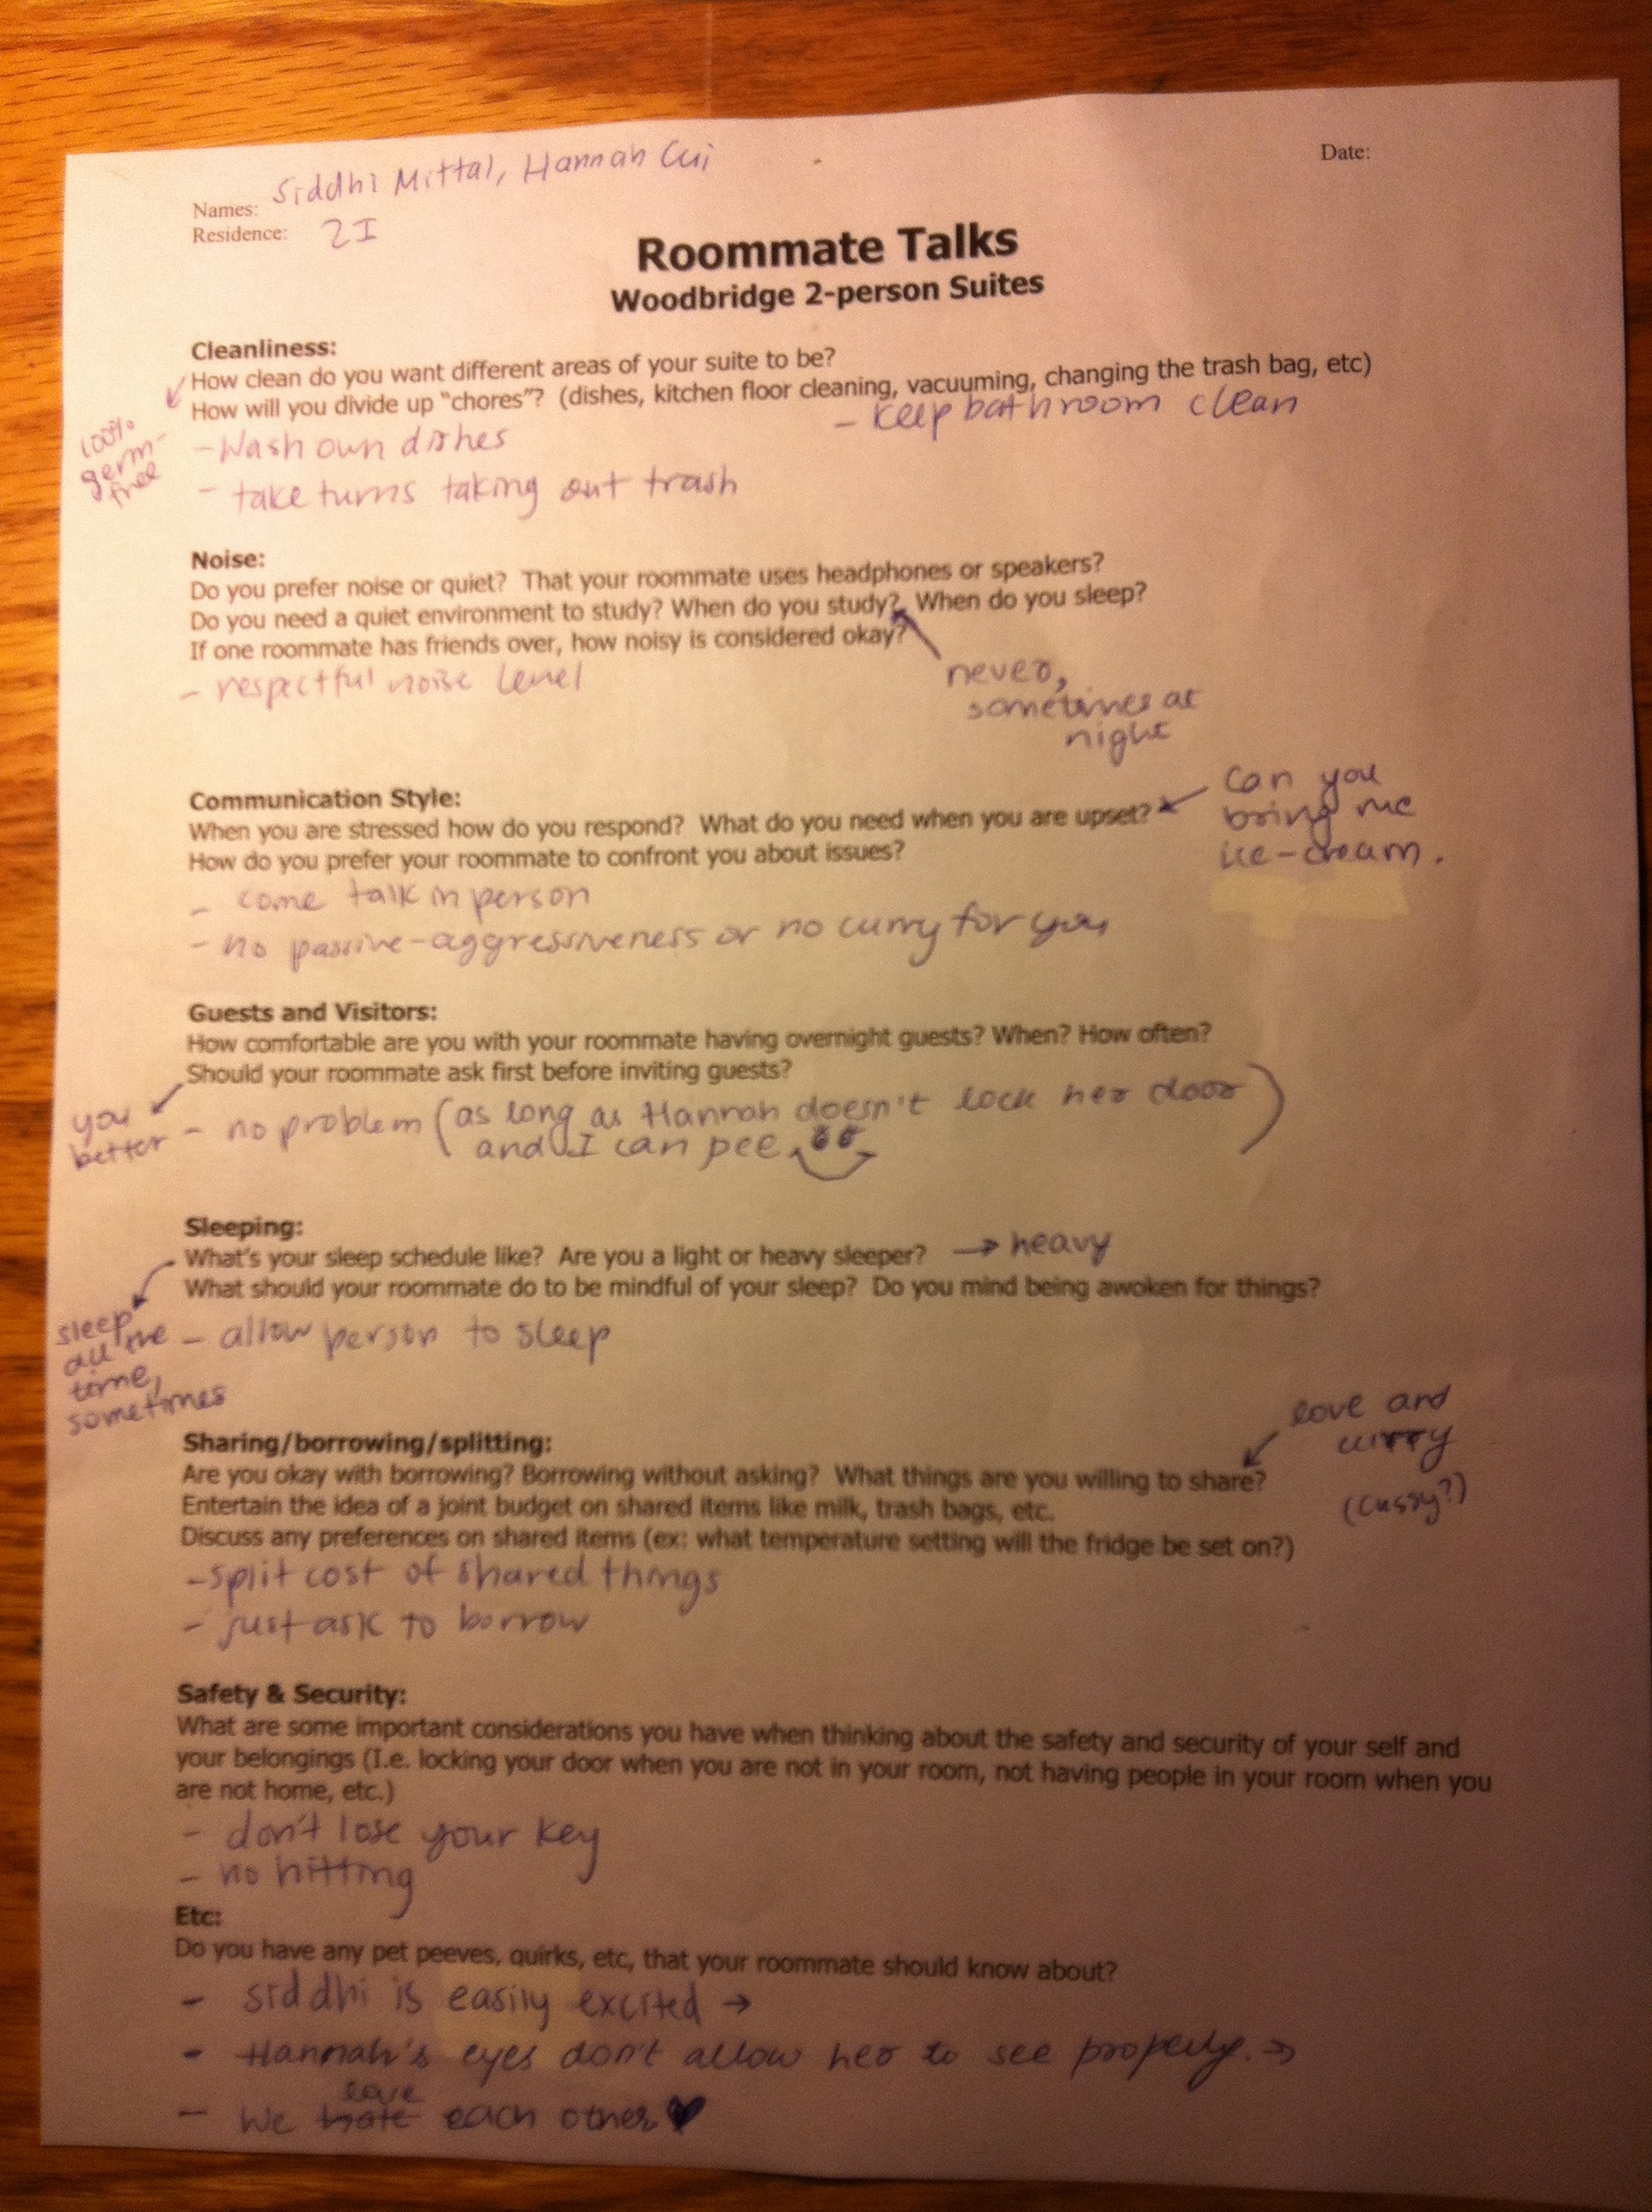 Date:
Names: Siddhi Mittal, Hannah Cui
Residence: 2I
Roommate Talks
Woodbridge 2-person Suites
Cleanliness:
How clean do you want different areas of your suite to be?
How will you divide up “chores”? (dishes, kitchen floor cleaning, vacuuming, changing the trash bag, etc)
100%
germ-
free
- Wash own dishes
- keep bathroom clean
- take turns taking out trash
Noise:
Do you prefer noise or quiet? That your roommate uses headphones or speakers?
Do you need a quiet environment to study? When do you study? When do you sleep?
If one roommate has friends over, how noisy is considered okay?
- respectful noise level
never,
sometimes at
night
Communication Style:
When you are stressed how do you respond? What do you need when you are upset?
How do you prefer your roommate to confront you about issues?
can you
bring me
ice-cream.
- come talk in person
- no passive-aggressiveness or no curry for you
Guests and Visitors:
How comfortable are you with your roommate having overnight guests? When? How often?
Should your roommate ask first before inviting guests?
you
better
- no problem (as long as Hannah doesn't lock her door
and I can pee )
Sleeping:
What's your sleep schedule like? Are you a light or heavy sleeper? → heavy
What should your roommate do to be mindful of your sleep? Do you mind being awoken for things?
sleep
all the
time,
sometimes
- allow person to sleep
Sharing/borrowing/splitting:
Are you okay with borrowing? Borrowing without asking? What things are you willing to share?
Entertain the idea of a joint budget on shared items like milk, trash bags, etc.
Discuss any preferences on shared items (ex: what temperature setting will the fridge be set on?)
love and
curry
- split cost of shared things
- just ask to borrow
Safety & Security:
What are some important considerations you have when thinking about the safety and security of your self and
your belongings (I.e. locking your door when you are not in your room, not having people in your room when you
are not home, etc.)
- don't lose your key
- no hitting
Etc:
Do you have any pet peeves, quirks, etc, that your roommate should know about?
- siddhi is easily excited →
- Hannah's eyes don't allow her to see properly. →
love
- We hate each other ♥